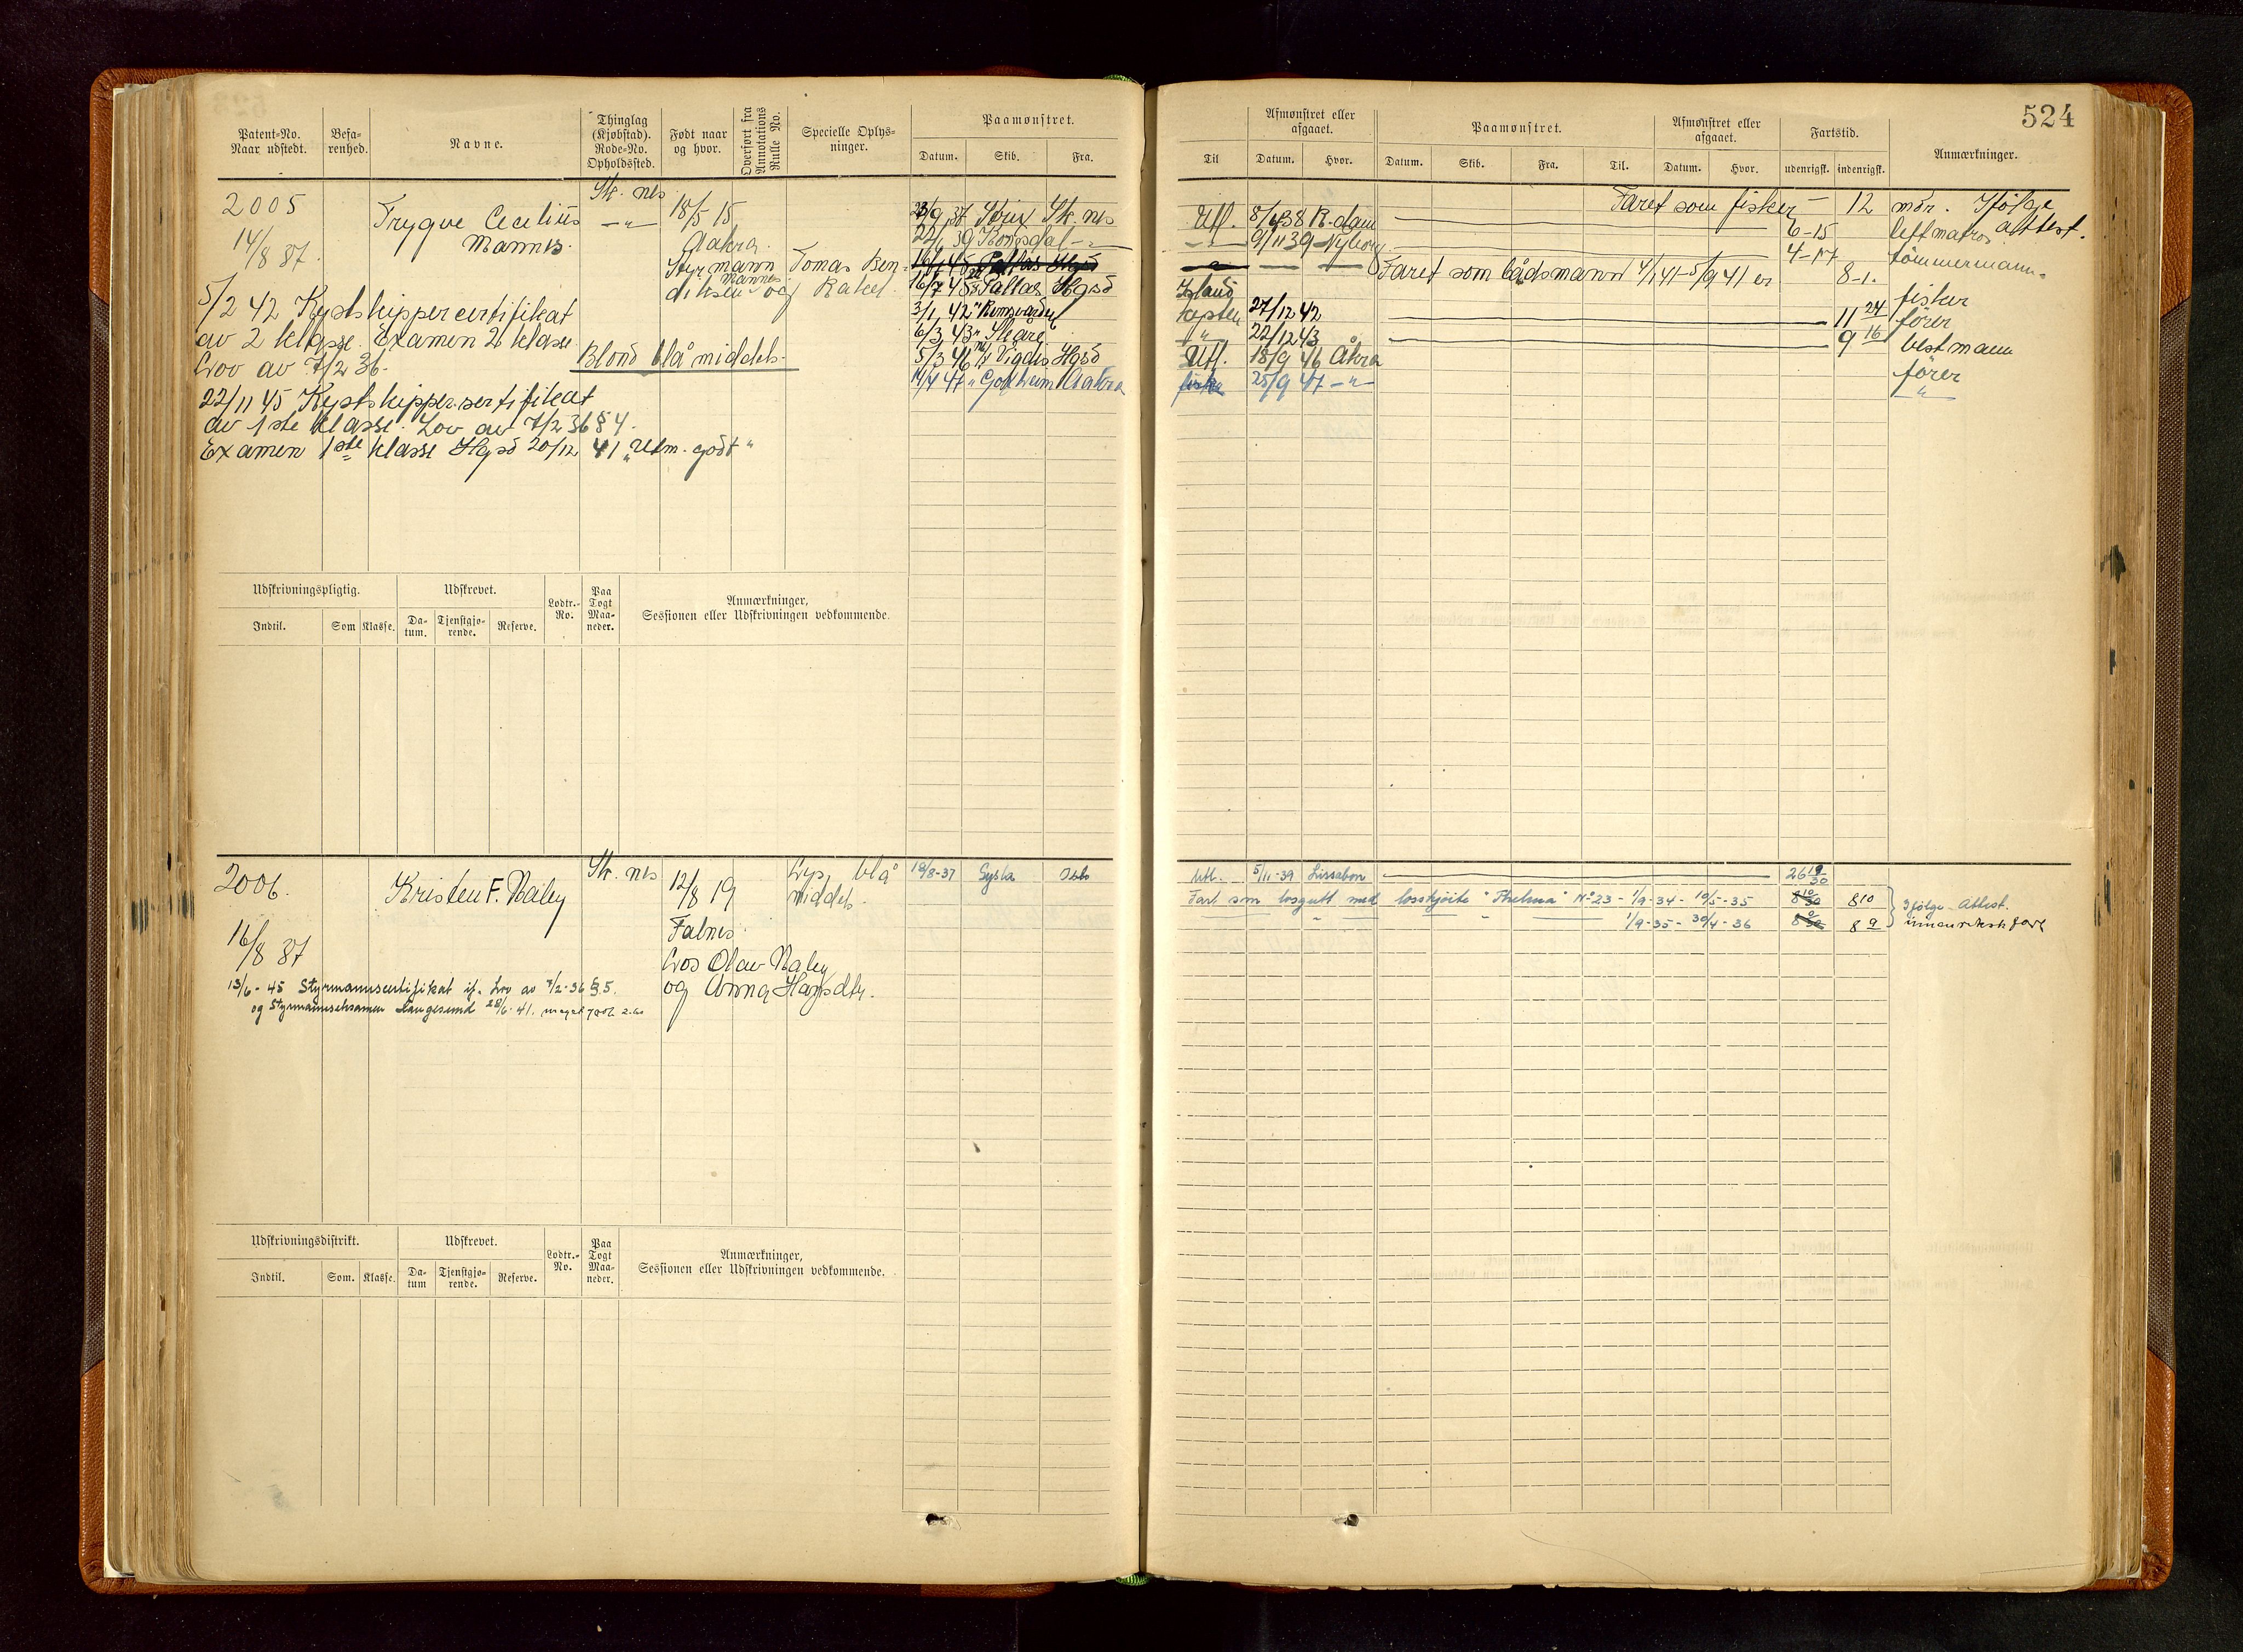 524
Patent-No. Naar udstedt.
Befa-renhed.
Navne.
Thinglag (Kjøbstad). Rode-No. Opholdssted.
Født naar og hvor.
Overført fra Annotations Rulle No.
Specielle Oplys-ninger.
Paamønstret.
Datum. Skib. Fra.
Til
Afmønstret eller afgaaet.
Datum. Hvor.
Paamønstret.
Datum. Skib. Fra. Til.
Afmønstret eller afgaaet.
Datum. Hvor.
Fartstid.
udenrigsk. indenrigsk.
Anmærkninger.
2005
14/8 37.
Trygve Cecelius
Mannes.
Sk. nes
-"-
18/5 15
Aakra.
Styrmann Tomas Ben-
diksen Mannes og Rakel
5/2 42 Kystskippercertifikat
av 2 klasse. Examen 2 klasse
Lov av 7/2 36.
Blond blå middels.
22/11 45 Kystskippersertifikat
av 1ste klasse. Lov av 7/2 36 § 4.
Examen 1ste klasse Hgsd 20/12 41 "Utm. godt"
23/9 37 Sk. nes
22/1 39 Kongsdal -"-
16/7 45 Pallas Hgsd
16/7 45 Pallas Hgsd
3/1 42
6/3 43 " Skare
5/3 46 Vigdis Hgsd
14/4 47 " Aakra
Faret som fisker - 12 mdr. Ifølge attest.
Utl. 8/6 38 R-dam 6-15 lettmatros
-"- 9/11 39 Nyborg 4-17 tömmermann
Faret som bådsmann 4/1 41 - 5/9 41 er 8-1.
Island fisker
kysten 27/12 42 11 24 fører
" 22/12 43 9 16 bestmann
Utl. 18/9 46 Åkra fører
fiske 25/9 47 -"- -"-
Udskrivningspligtig.
Indtil. Som Klasse.
Udskrevet.
Da-tum. Tjenstgjø-rende. Reserve.
Lodtr.-No.
Paa Togt Maa-neder.
Anmærkninger, Sessionen eller Udskrivningen vedkommende.
2006.
16/8 37
Kristen F. Naley
Sk. nes
12/8 19
Falnes.
Los Olav Naley
og Anna Hansdtr.
Lys, blå
middels.
13/6 - 45 Styrmannscertifikat if. Lov av 7/2-36 § 5.
og Styrmannseksamen Langesund 28/6-41. meget godt
18/8-37 Sysla Oslo
Utl. 5/11-39 Lissabon 26 19/30
Fart som losgutt med losskjöite "Thelma" No 23 - 1/9-34 - 10/5-35 8 10 Ifølge Attest.
" " 1/9-35 - 30/4-36 8 9 innenriksk fart
Udskrivningsdistrikt.
Indtil. Som. Klasse.
Udskrevet.
Da-tum Tjenstgjø-rende. Reserve.
Lodtr.-No.
Paa Togt Maa-neder.
Anmærkninger, Sessionen eller Udskrivningen vedkommende.